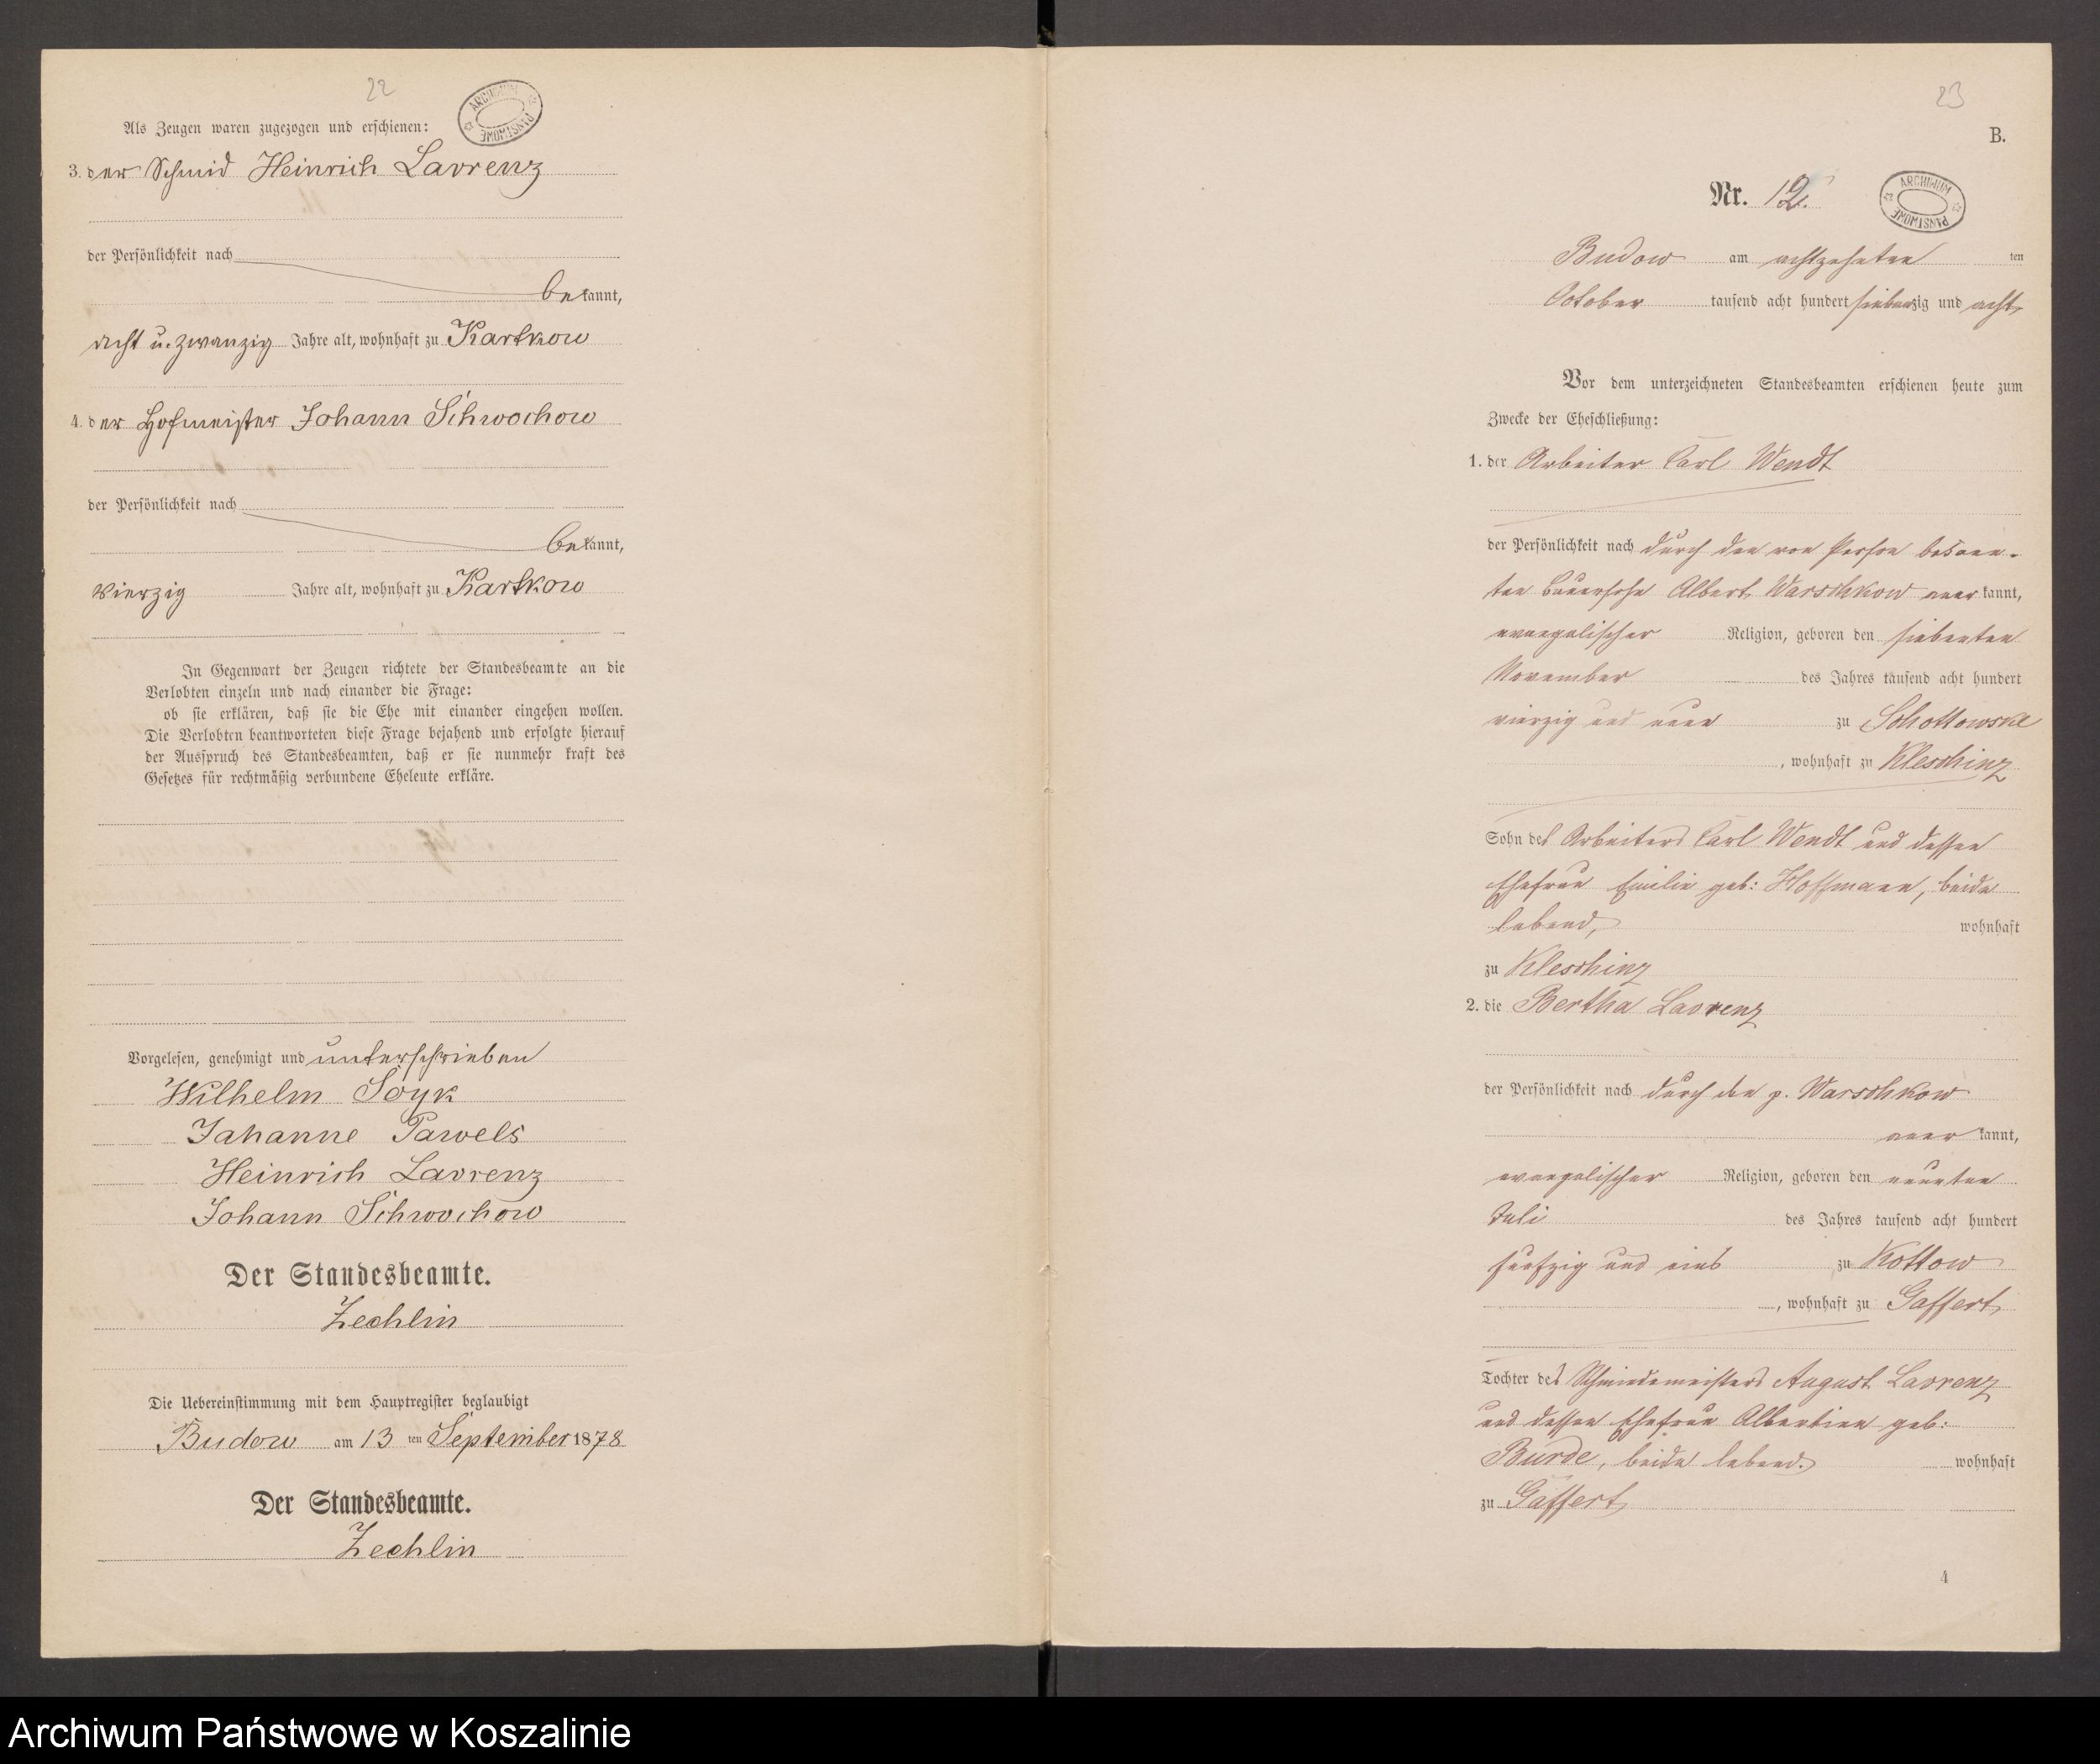 22
ARCHIWUM PAŃSTWOWE
Als Zeugen waren zugezogen und erschienen:
3. der Schmid Heinrich Lavrenz
der Persönlichkeit nach
bekannt,
acht u. zwanzig Jahre alt, wohnhaft zu Kartkow
4. der Hofmeister Johann Schwochow
der Persönlichkeit nach
bekannt,
vierzig Jahre alt, wohnhaft zu Kartkow
In Gegenwart der Zeugen richtete der Standesbeamte an die
Verlobten einzeln und nach einander die Frage:
ob sie erklären, daß sie die Ehe mit einander eingehen wollen.
Die Verlobten beantworteten diese Frage bejahend und erfolgte hierauf
der Ausspruch des Standesbeamten, daß er sie nunmehr kraft des
Gesetzes für rechtmäßig verbundene Eheleute erkläre.
Vorgelesen, genehmigt und unterschrieben
Wilhelm Soyk
Johanne Pawels
Heinrich Lavrenz
Johann Schwochow
Der Standesbeamte.
Zechlin
Die Uebereinstimmung mit dem Hauptregister beglaubigt
Budow am 13 ten September 1878
Der Standesbeamte.
Zechlin
23
B.
Nr. 12.
ARCHIWUM PAŃSTWOWE
Budow am achtzehnten ten
October tausend acht hundert siebenzig und acht
Vor dem unterzeichneten Standesbeamten erschienen heute zum
Zwecke der Eheschließung:
1. der Arbeiter Carl Wendt
der Persönlichkeit nach durch den von Person bekann-
ten Bauersohn Albert Warschkow anerkannt,
evangelischer Religion, geboren den siebenten
November des Jahres tausend acht hundert
vierzig und neun zu Schottowske
, wohnhaft zu Kleschinz
Sohn des Arbeiters Carl Wendt und dessen
Ehefrau Emilie geb: Hoffmann, beide
lebend, wohnhaft
zu Kleschinz
2. die Bertha Lavrenz
der Persönlichkeit nach durch den p. Warschkow
anerkannt,
evangelischer Religion, geboren den neunten
Juli des Jahres tausend acht hundert
fünfzig und eins zu Kottow
, wohnhaft zu Gaffert
Tochter des Schmiedemeisters August Lavrenz
und dessen Ehefrau Albertine geb:
Burde, beide lebend. wohnhaft
zu Gaffert
4
Archiwum Państwowe w Koszalinie